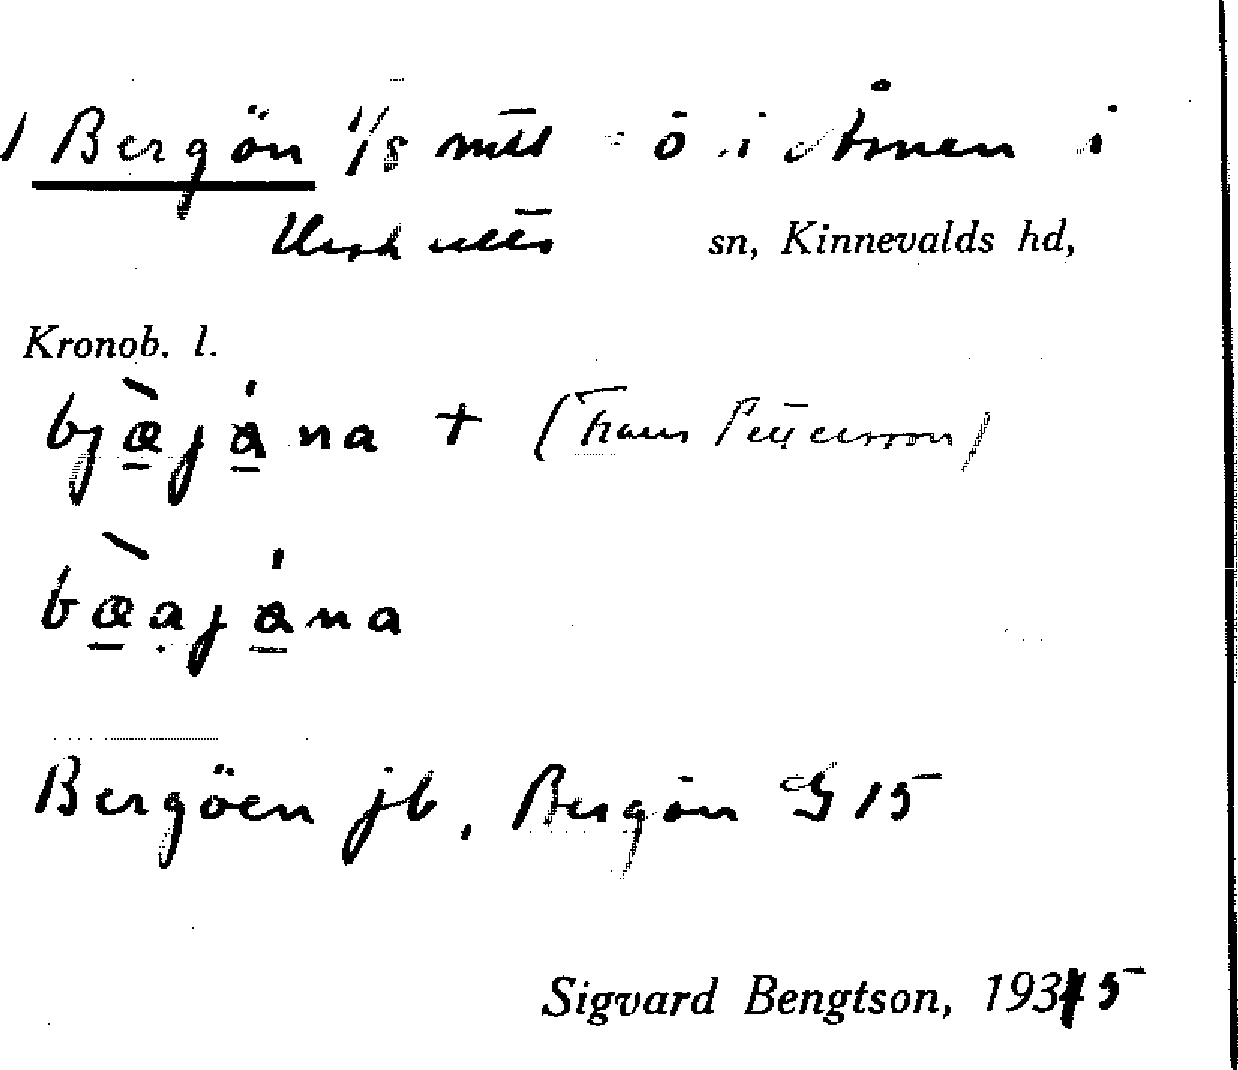 1 Bergön 1/8 mtl ö i Åsnen i
Urshults sn, Kinnevalds hd,
Kronob. l.
bjæ̀jåna + (Frans Pettersson)
bæ̀ajåna
Bergöen jb, Bergön G 15
Sigvard Bengtson, 1935